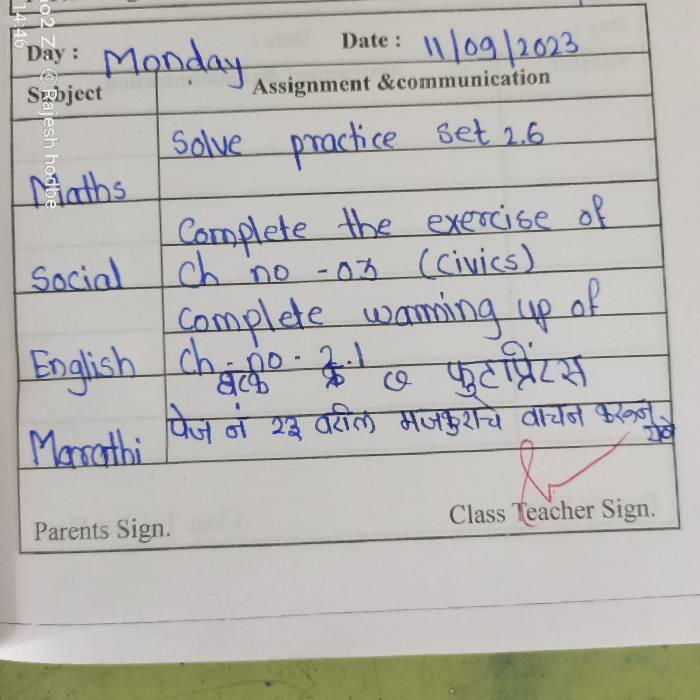 Day : Monday Date : 11/09/2023
Subject Assignment & communication
Maths Solve practice set 2.6
Social Complete the exercise of
Ch no - 03 (Civics)
English Complete warming up of
Ch - no - 2.1
Marathi फुटप्रिंट्स
पेज नं २३ वरील मजकुराचे वाचन करून येणे
Parents Sign. Class Teacher Sign.
14:46
@Rajesh hodbe